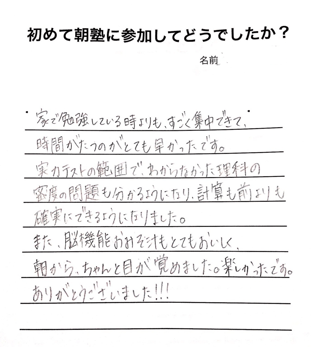 初めて朝塾に参加してどうでしたか？
名前
家で勉強している時よりも、すごく集中できて、
時間がたつのがとても早かったです。
実力テストの範囲で、わからなかった理科の
密度の問題も分かるようになり、計算も前よりも
確実にできるようになりました。
また、脳機能おみそ汁もとてもおいしく、
朝から、ちゃんと目が覚めました。楽しかったです。
ありがとうございました!!!